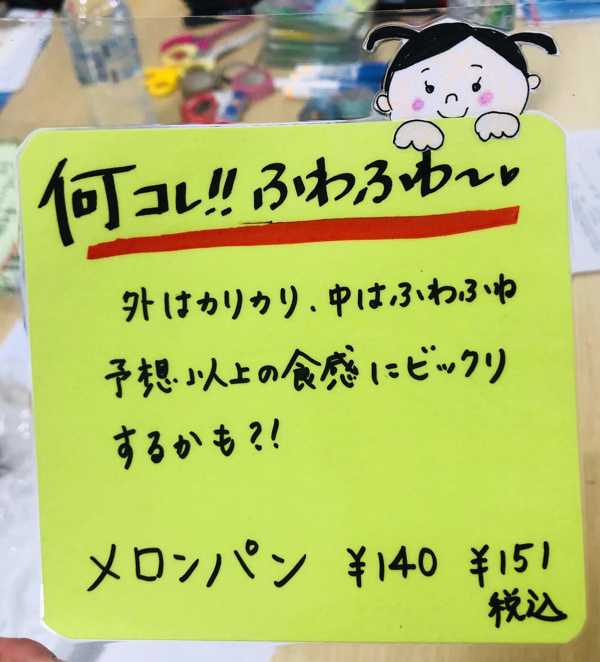 何コレ!! ふわふわ〜♥
外はカリカリ、中はふわふわ
予想以上の食感にビックリ
するかも?!
メロンパン ¥140 ¥151
税込